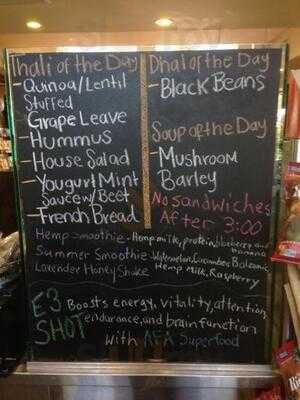 Thali of the Day
-Quinoa/Lentil
Stuffed
Grape Leave
-Hummus
-House Salad
-Yogurt Mint
Sauce w/Beet
-French Bread
Dhal of the Day
-Black Beans
Soup of the Day
-Mushroom
Barley
No Sandwiches
After 3:00
Hemp Smoothie - Hemp milk, protein, blueberry and
banana
Summer Smoothie - Watermelon, Cucumber, Balsamic
Lavender Honey Shake Hemp Milk, Raspberry
E3 Boosts energy, vitality, attention,
SHOT endurance, and brain function
with AFA Superfood